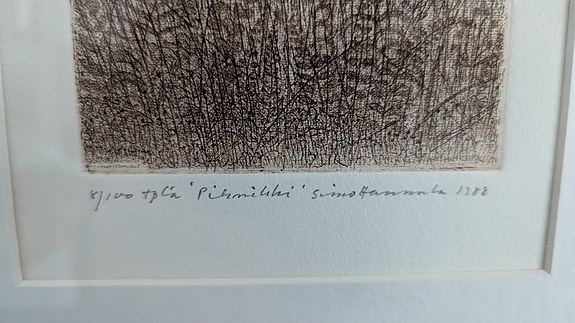 8/100 tpl'a 'Piknikki' Simo Hannula 1988